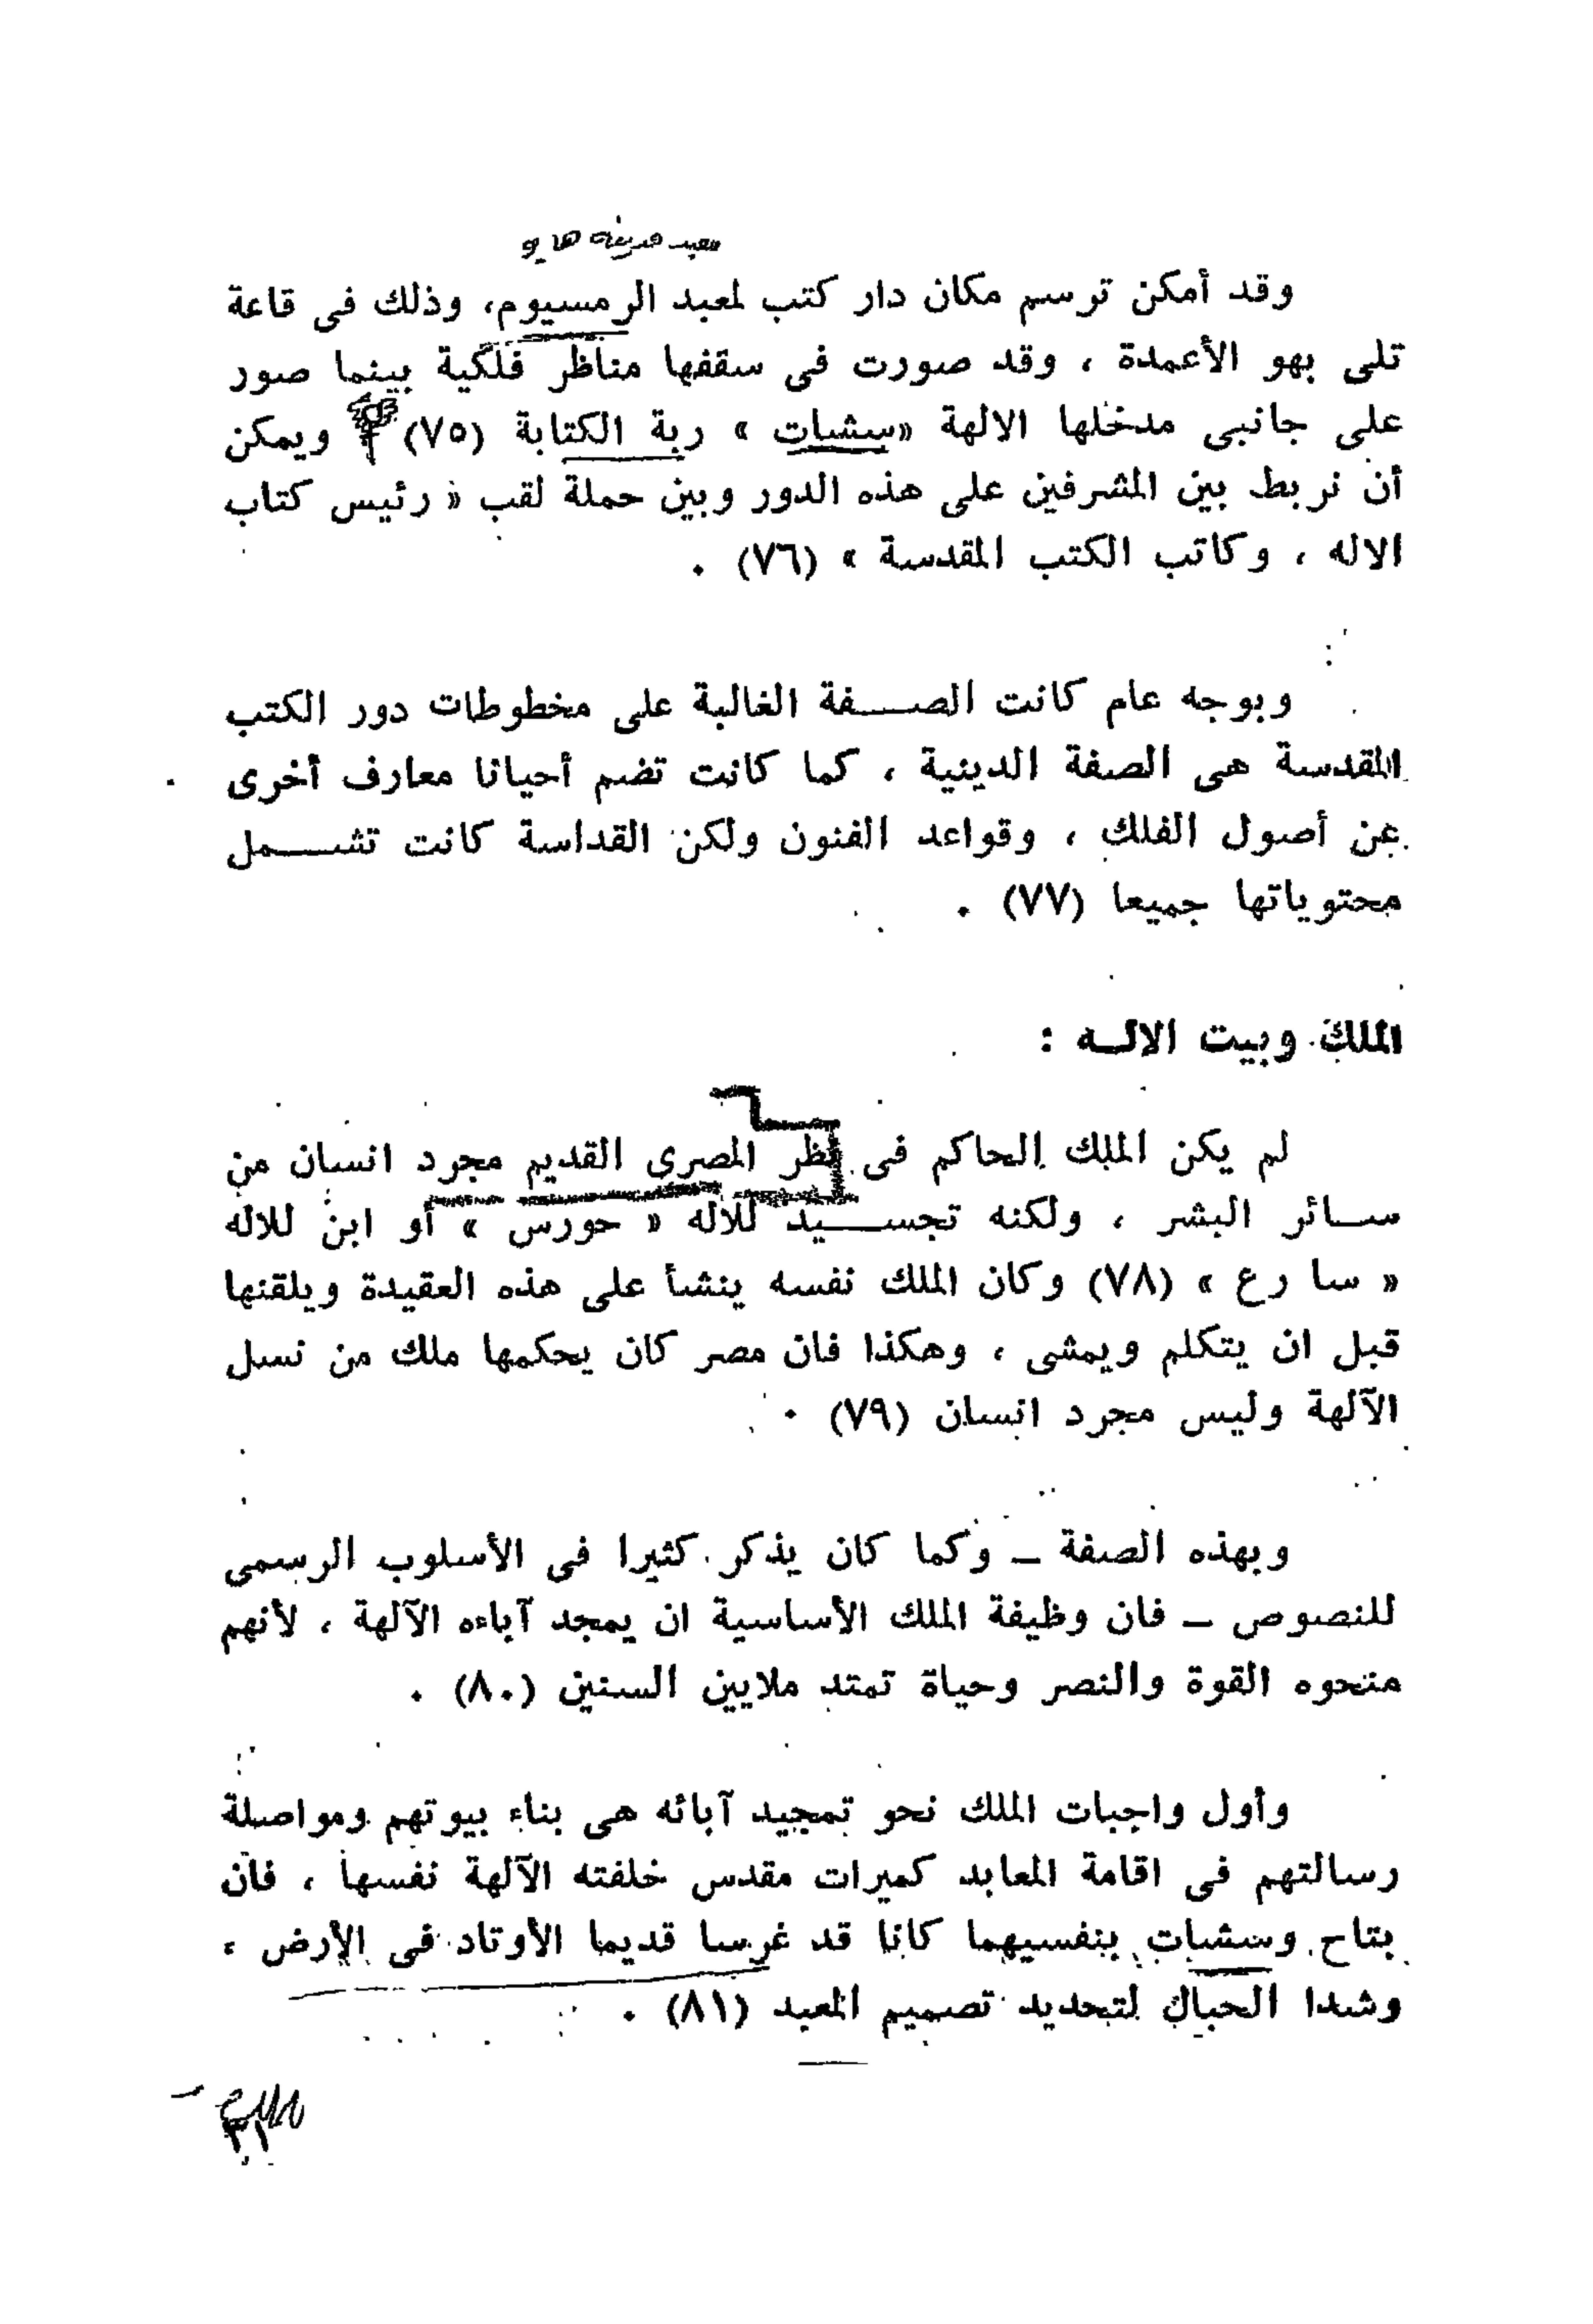 معبد مدينة هابو
وقد أمكن ترسم مكان دار كتب لمعبد الرمسيوم، وذلك فى قاعة
تلى بهو الأعمدة ، وقد صورت فى سقفها مناظر فلكية بينما صور
على جانبى مدخلها الالهة «سشات » ربة الكتابة (٧٥) ويمكن
أن نربط بين المشرفين على هذه الدور وبين حملة لقب « رئيس كتاب
الاله ، وكاتب الكتب المقدسة » (٧٦) .
وبوجه عام كانت الصـــفة الغالبة على مخطوطات دور الكتب
المقدسة هى الصفة الدينية ، كما كانت تضم أحيانا معارف أخرى
عن أصول الفلك ، وقواعد الفنون ولكن القداسة كانت تشـــمل
محتوياتها جميعا (٧٧) .
الملك وبيت الالـه :
لم يكن الملك الحاكم فى نظر المصرى القديم مجرد انسان من
ســائر البشر ، ولكنه تجســـيد للاله « حورس » أو ابن للاله
« سا رع » (٧٨) وكان الملك نفسه ينشأ على هذه العقيدة ويلقنها
قبل ان يتكلم ويمشى ، وهكذا فان مصر كان يحكمها ملك من نسل
الآلهة وليس مجرد انسان (٧٩) .
وبهذه الصفة ــ وكما كان يذكر كثيرا فى الأسلوب الرسمى
للنصوص ــ فان وظيفة الملك الأساسية ان يمجد آباءه الآلهة ، لأنهم
منحوه القوة والنصر وحياة تمتد ملايين السنين (٨٠) .
وأول واجبات الملك نحو تمجيد آبائه هى بناء بيوتهم ومواصلة
رسالتهم فى اقامة المعابد كميراث مقدس خلفته الآلهة نفسها ، فان
بتاح وسشات بنفسيهما كانا قد غرسا قديما الأوتاد فى الأرض ،
وشدا الحبال لتحديد تصميم المعبد (٨١) .
٣١